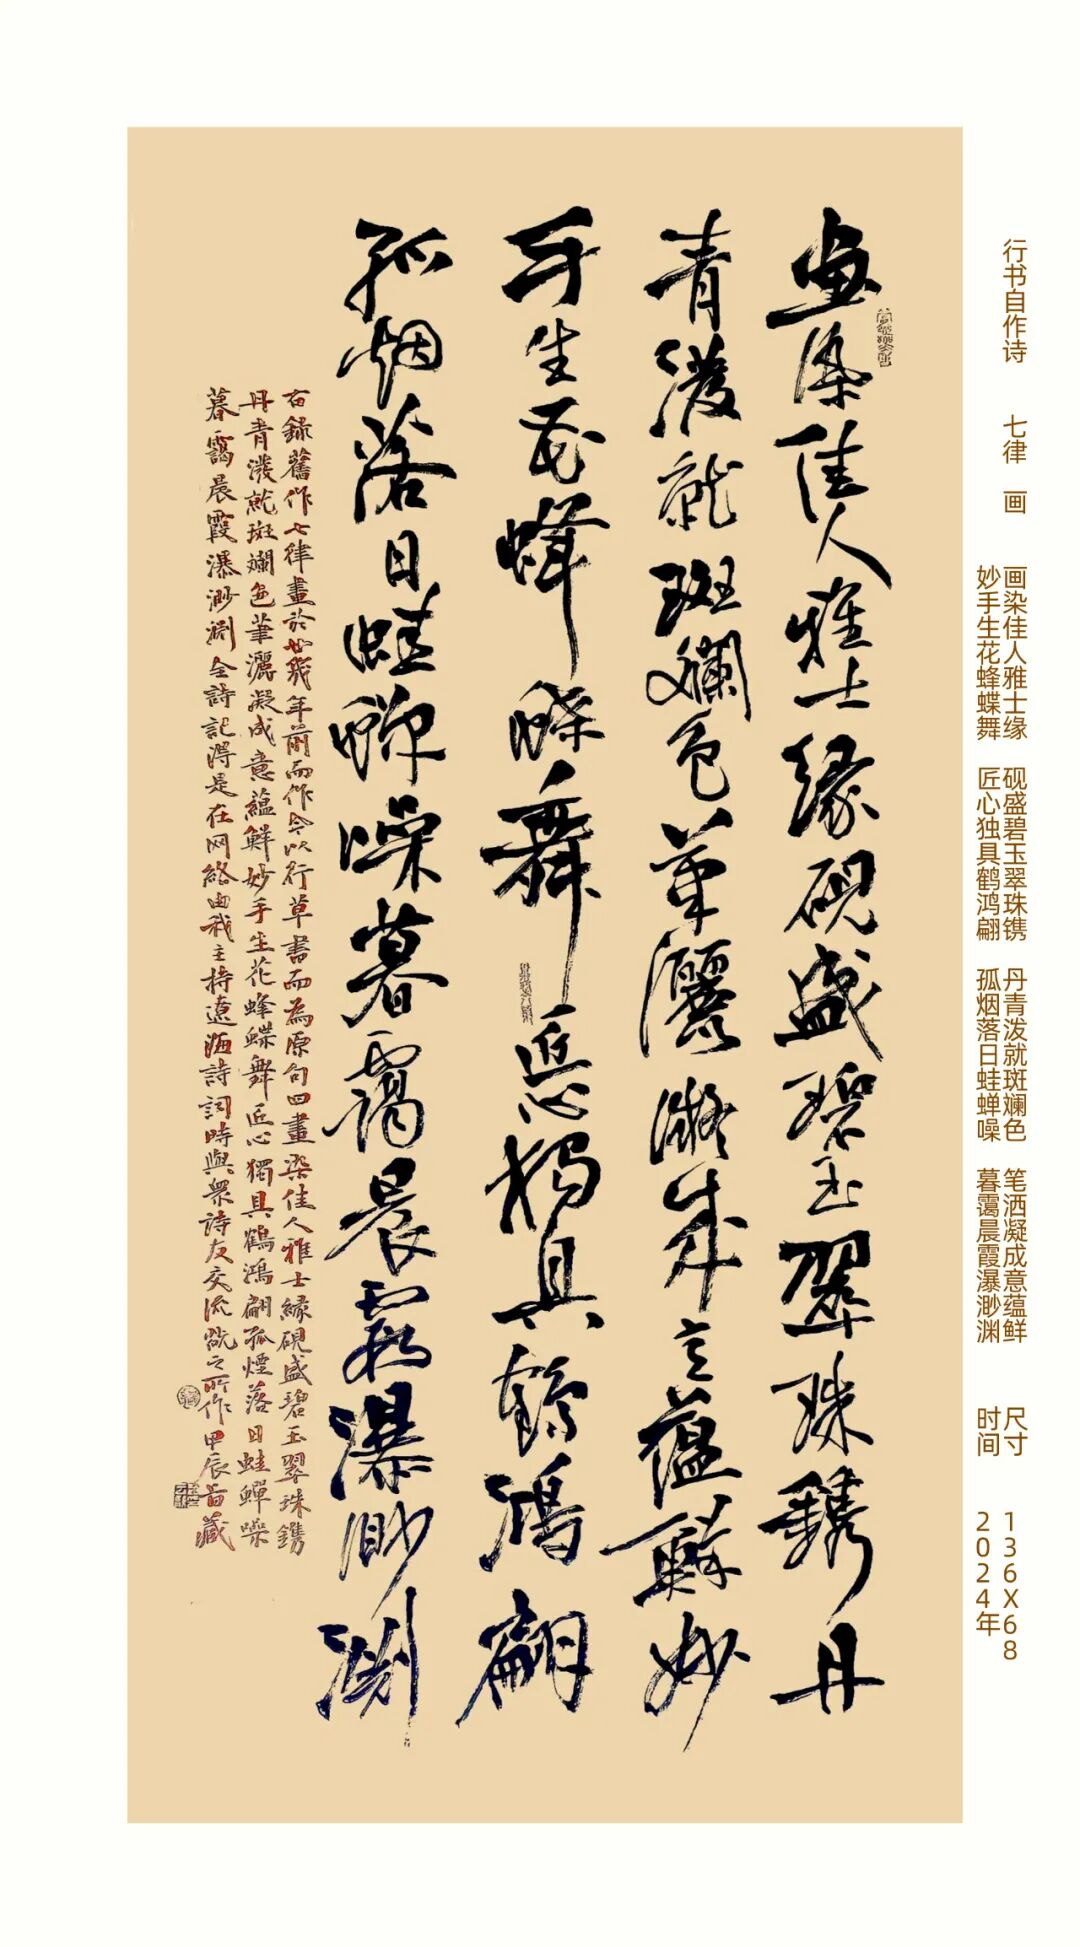 行书自作诗 七律 画 画染佳人雅士缘 砚盛碧玉翠珠镌 丹青泼就斑斓色 笔洒凝成意蕴鲜 尺寸 136X68
妙手生花蜂蝶舞 匠心独具鹤鸿翩 孤烟落日蛙蝉噪 暮霭晨霞瀑渺渊 时间 2024年
画染佳人雅士缘砚盛碧玉翠珠镌丹
青泼就斑斓色笔洒凝成意蕴鲜妙
手生花蜂蝶舞匠心獨具鶴鴻翩
孤烟落日蛙蟬噪暮靄晨霞瀑渺渊
右錄舊作七律畫於廿幾年前而作今以行草書而為原句曰畫染佳人雅士緣硯盛碧玉翠珠鐫
丹青潑就斑斕色筆灑凝成意蘊鮮妙手生花蜂蝶舞匠心獨具鶴鴻翩孤煙落日蛙蟬噪
暮靄晨霞瀑渺渊全詩記得是在网絡由我主持遼海詩詞時與眾詩友交流㰸之所作甲辰